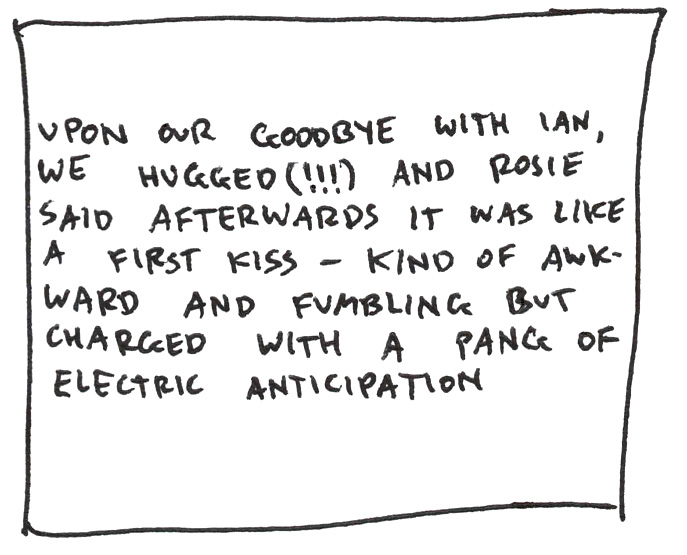 UPON OUR GOODBYE WITH IAN,
WE HUGGED(!!!) AND ROSIE
SAID AFTERWARDS IT WAS LIKE
A FIRST KISS – KIND OF AWK-
WARD AND FUMBLING BUT
CHARGED WITH A PANG OF
ELECTRIC ANTICIPATION